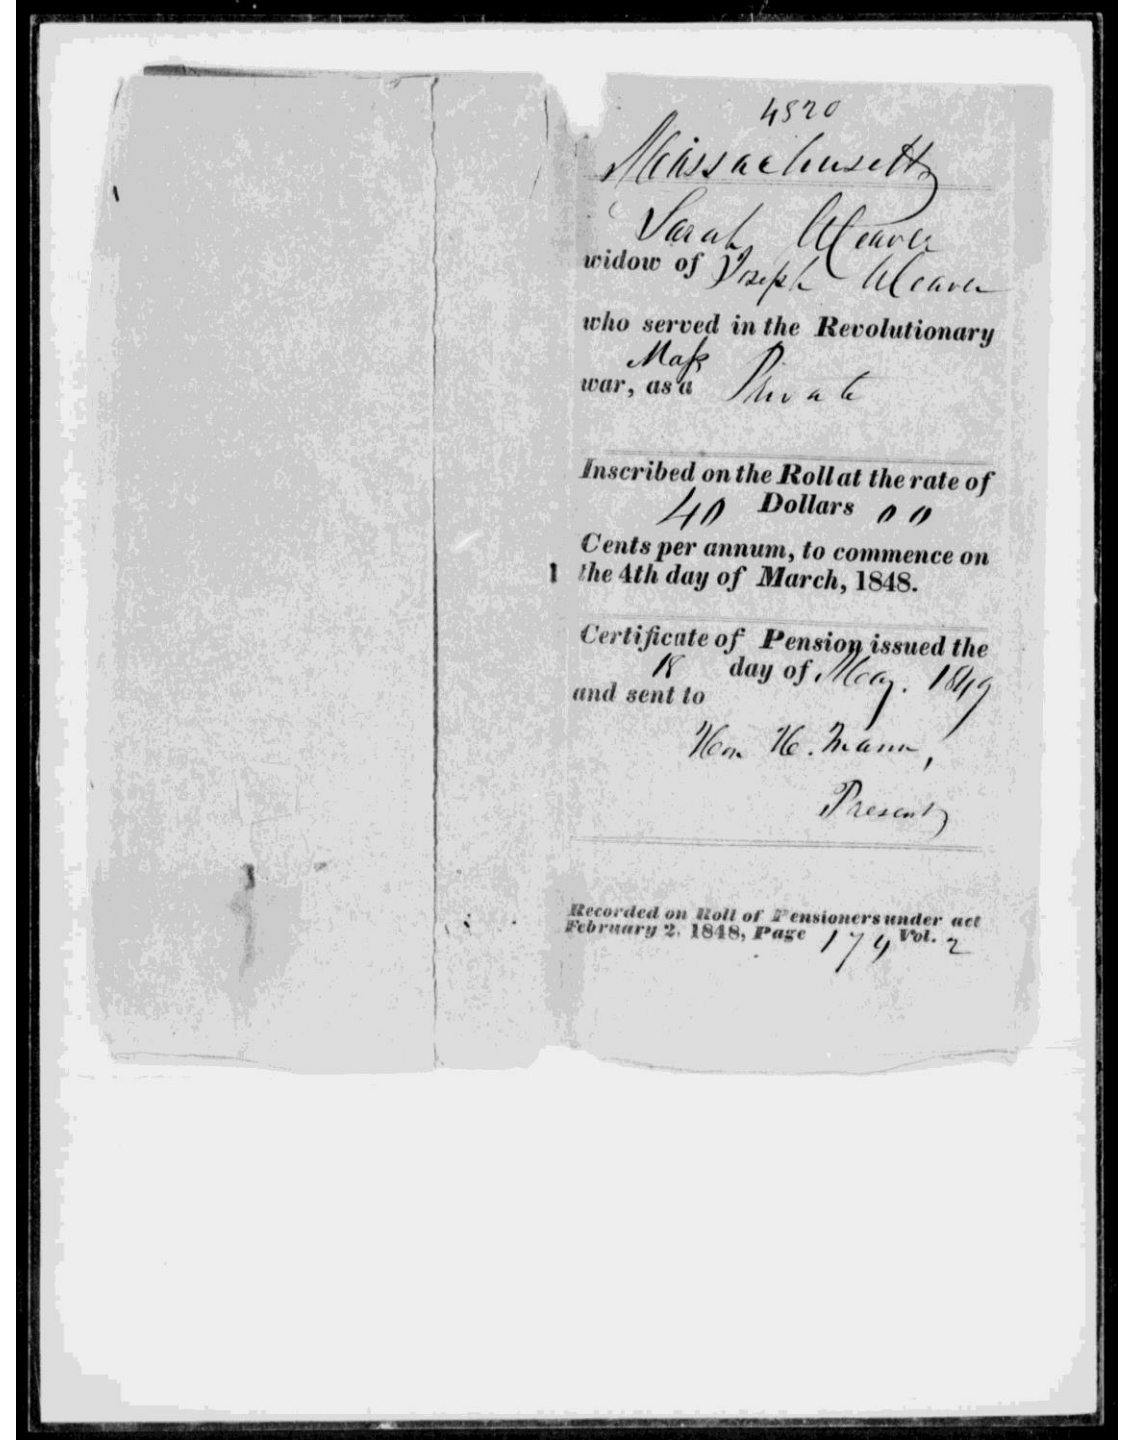 4820
Massachusetts
Sarah Weaver
widow of Joseph Weaver
who served in the Revolutionary
Mass
war, as a Private
Inscribed on the Roll at the rate of
40 Dollars 00
Cents per annum, to commence on
the 4th day of March, 1848.
Certificate of Pension issued the
18 day of May. 1849
and sent to
Hon H. Mann,
Present
Recorded on Roll of Pensioners under act
February 2, 1848, Page 174 Vol. 2